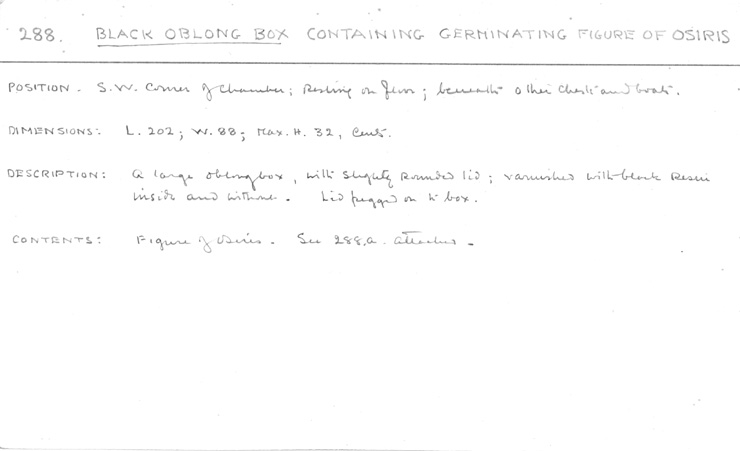 288. BLACK OBLONG BOX CONTAINING GERMINATING FIGURE OF OSIRIS
POSITION. S.W. Corner of Chamber; Resting on floor; beneath other chests and boats.
DIMENSIONS: L. 202; W. 88; Max. H. 32, Cent.
DESCRIPTION: A large oblong box, with slightly rounded lid; varnished with black resin
inside and without. Lid pegged on to box.
CONTENTS: Figure of Osiris. See 288,a. attached.